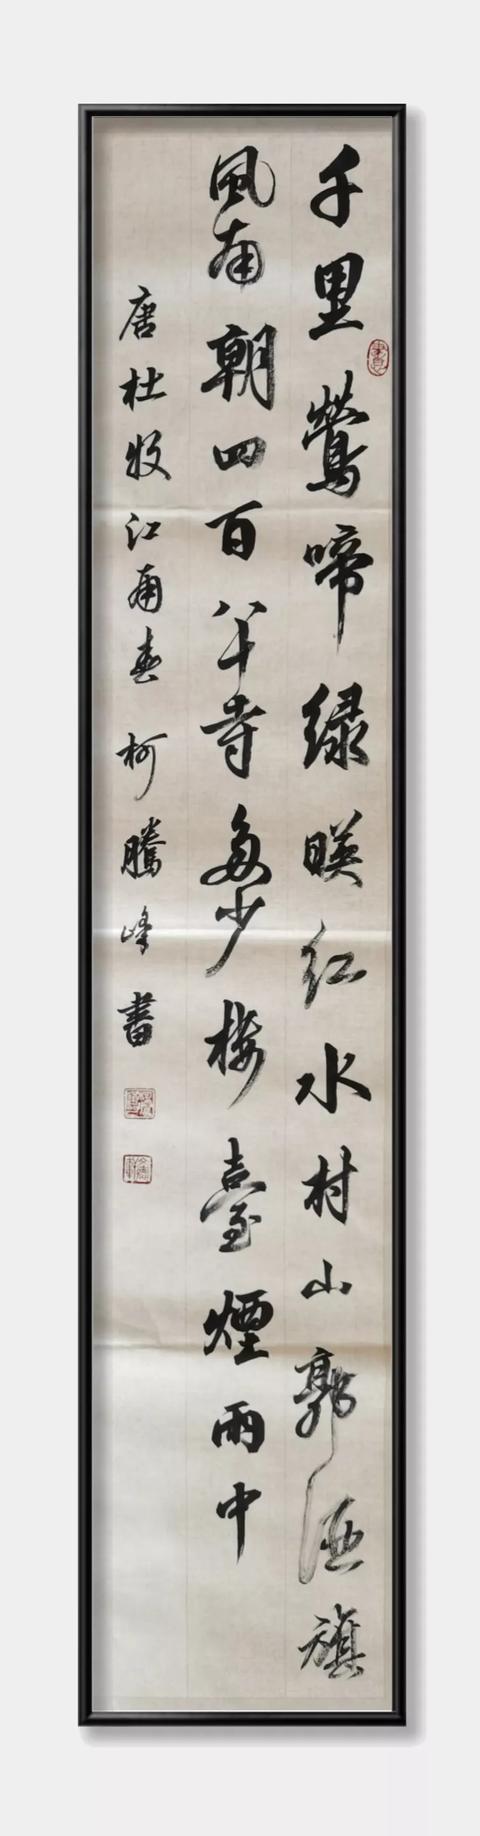 千里鶯啼绿暎红水村山郭酒旗
風南朝四百八十寺多少楼臺煙雨中
唐杜牧江南春 柯騰峰書